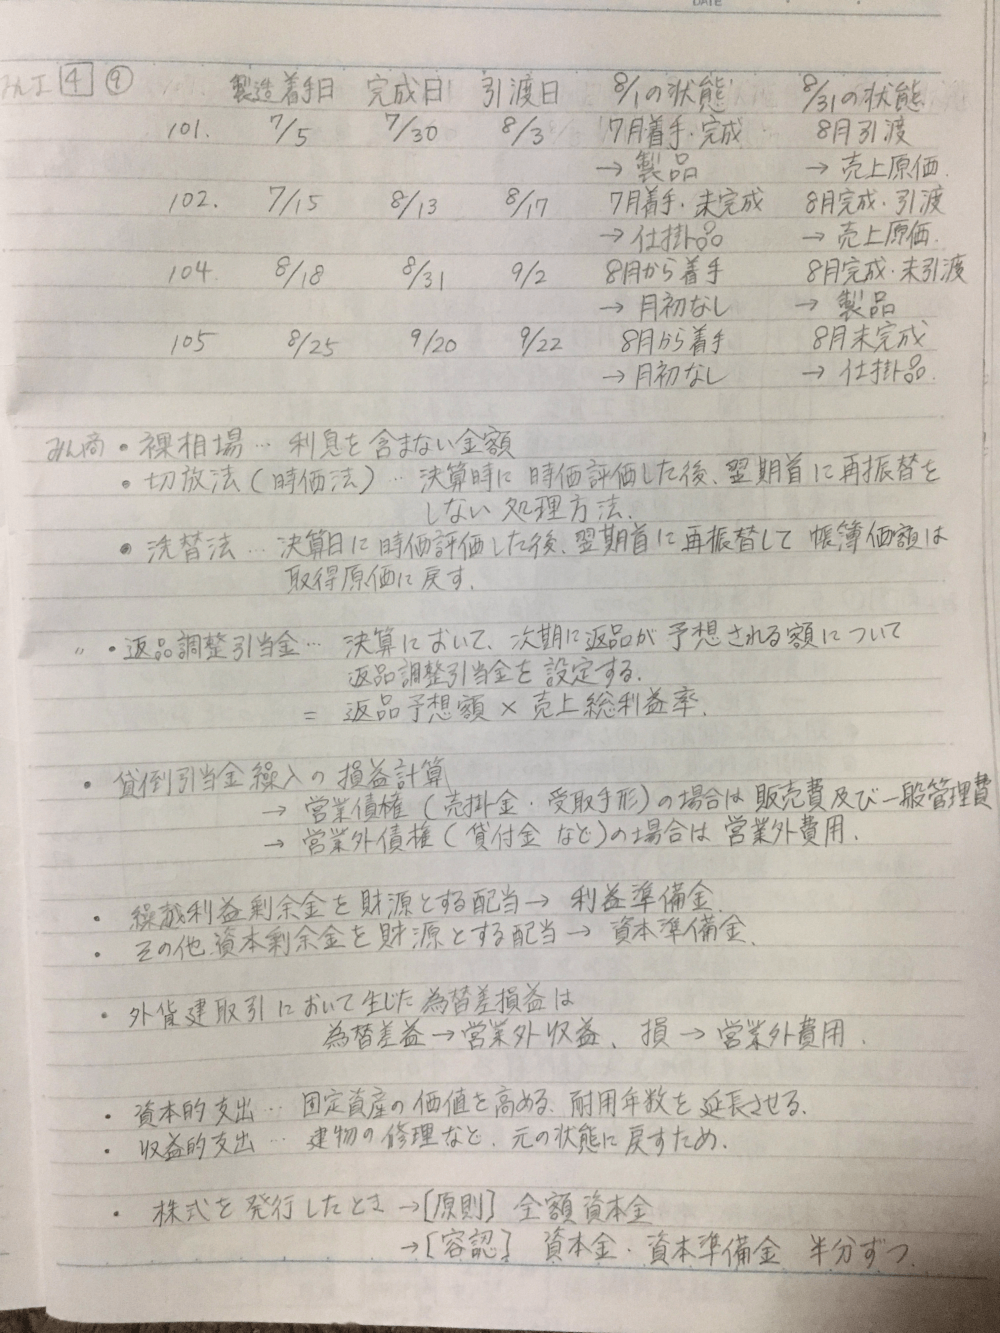 DATE
みんI 4 ⑨ 製造着手日 完成日 引渡日 8/1の状態 8/31の状態
101. 7/5 7/30 8/3 7月着手・完成 8月引渡
→ 製品 → 売上原価.
102. 7/15 8/13 8/17 7月着手・未完成 8月完成・引渡
→ 仕掛品 → 売上原価.
104. 8/18 8/31 9/2 8月から着手 8月完成・未引渡
→ 月初なし → 製品
105 8/25 9/20 9/22 8月から着手 8月未完成
→ 月初なし → 仕掛品.
みん商・裸相場… 利息を含まない金額
・切放法(時価法)… 決算時に時価評価した後、翌期首に再振替を
しない処理方法.
・洗替法… 決算日に時価評価した後、翌期首に再振替して帳簿価額は
取得原価に戻す.
〃・返品調整引当金… 決算において、次期に返品が予想される額について
返品調整引当金を設定する.
= 返品予想額 × 売上総利益率.
・貸倒引当金繰入の損益計算
→ 営業債権(売掛金・受取手形)の場合は販売費及び一般管理費
→ 営業外債権(貸付金など)の場合は営業外費用.
・繰越利益剰余金を財源とする配当→ 利益準備金.
・その他資本剰余金を財源とする配当→ 資本準備金.
・外貨建取引において生じた為替差損益は
為替差益→営業外収益、損→営業外費用.
・資本的支出… 固定資産の価値を高める、耐用年数を延長させる.
・収益的支出… 建物の修理など、元の状態に戻すため.
・株式を発行したとき→[原則] 全額資本金
→[容認] 資本金・資本準備金 半分ずつ.